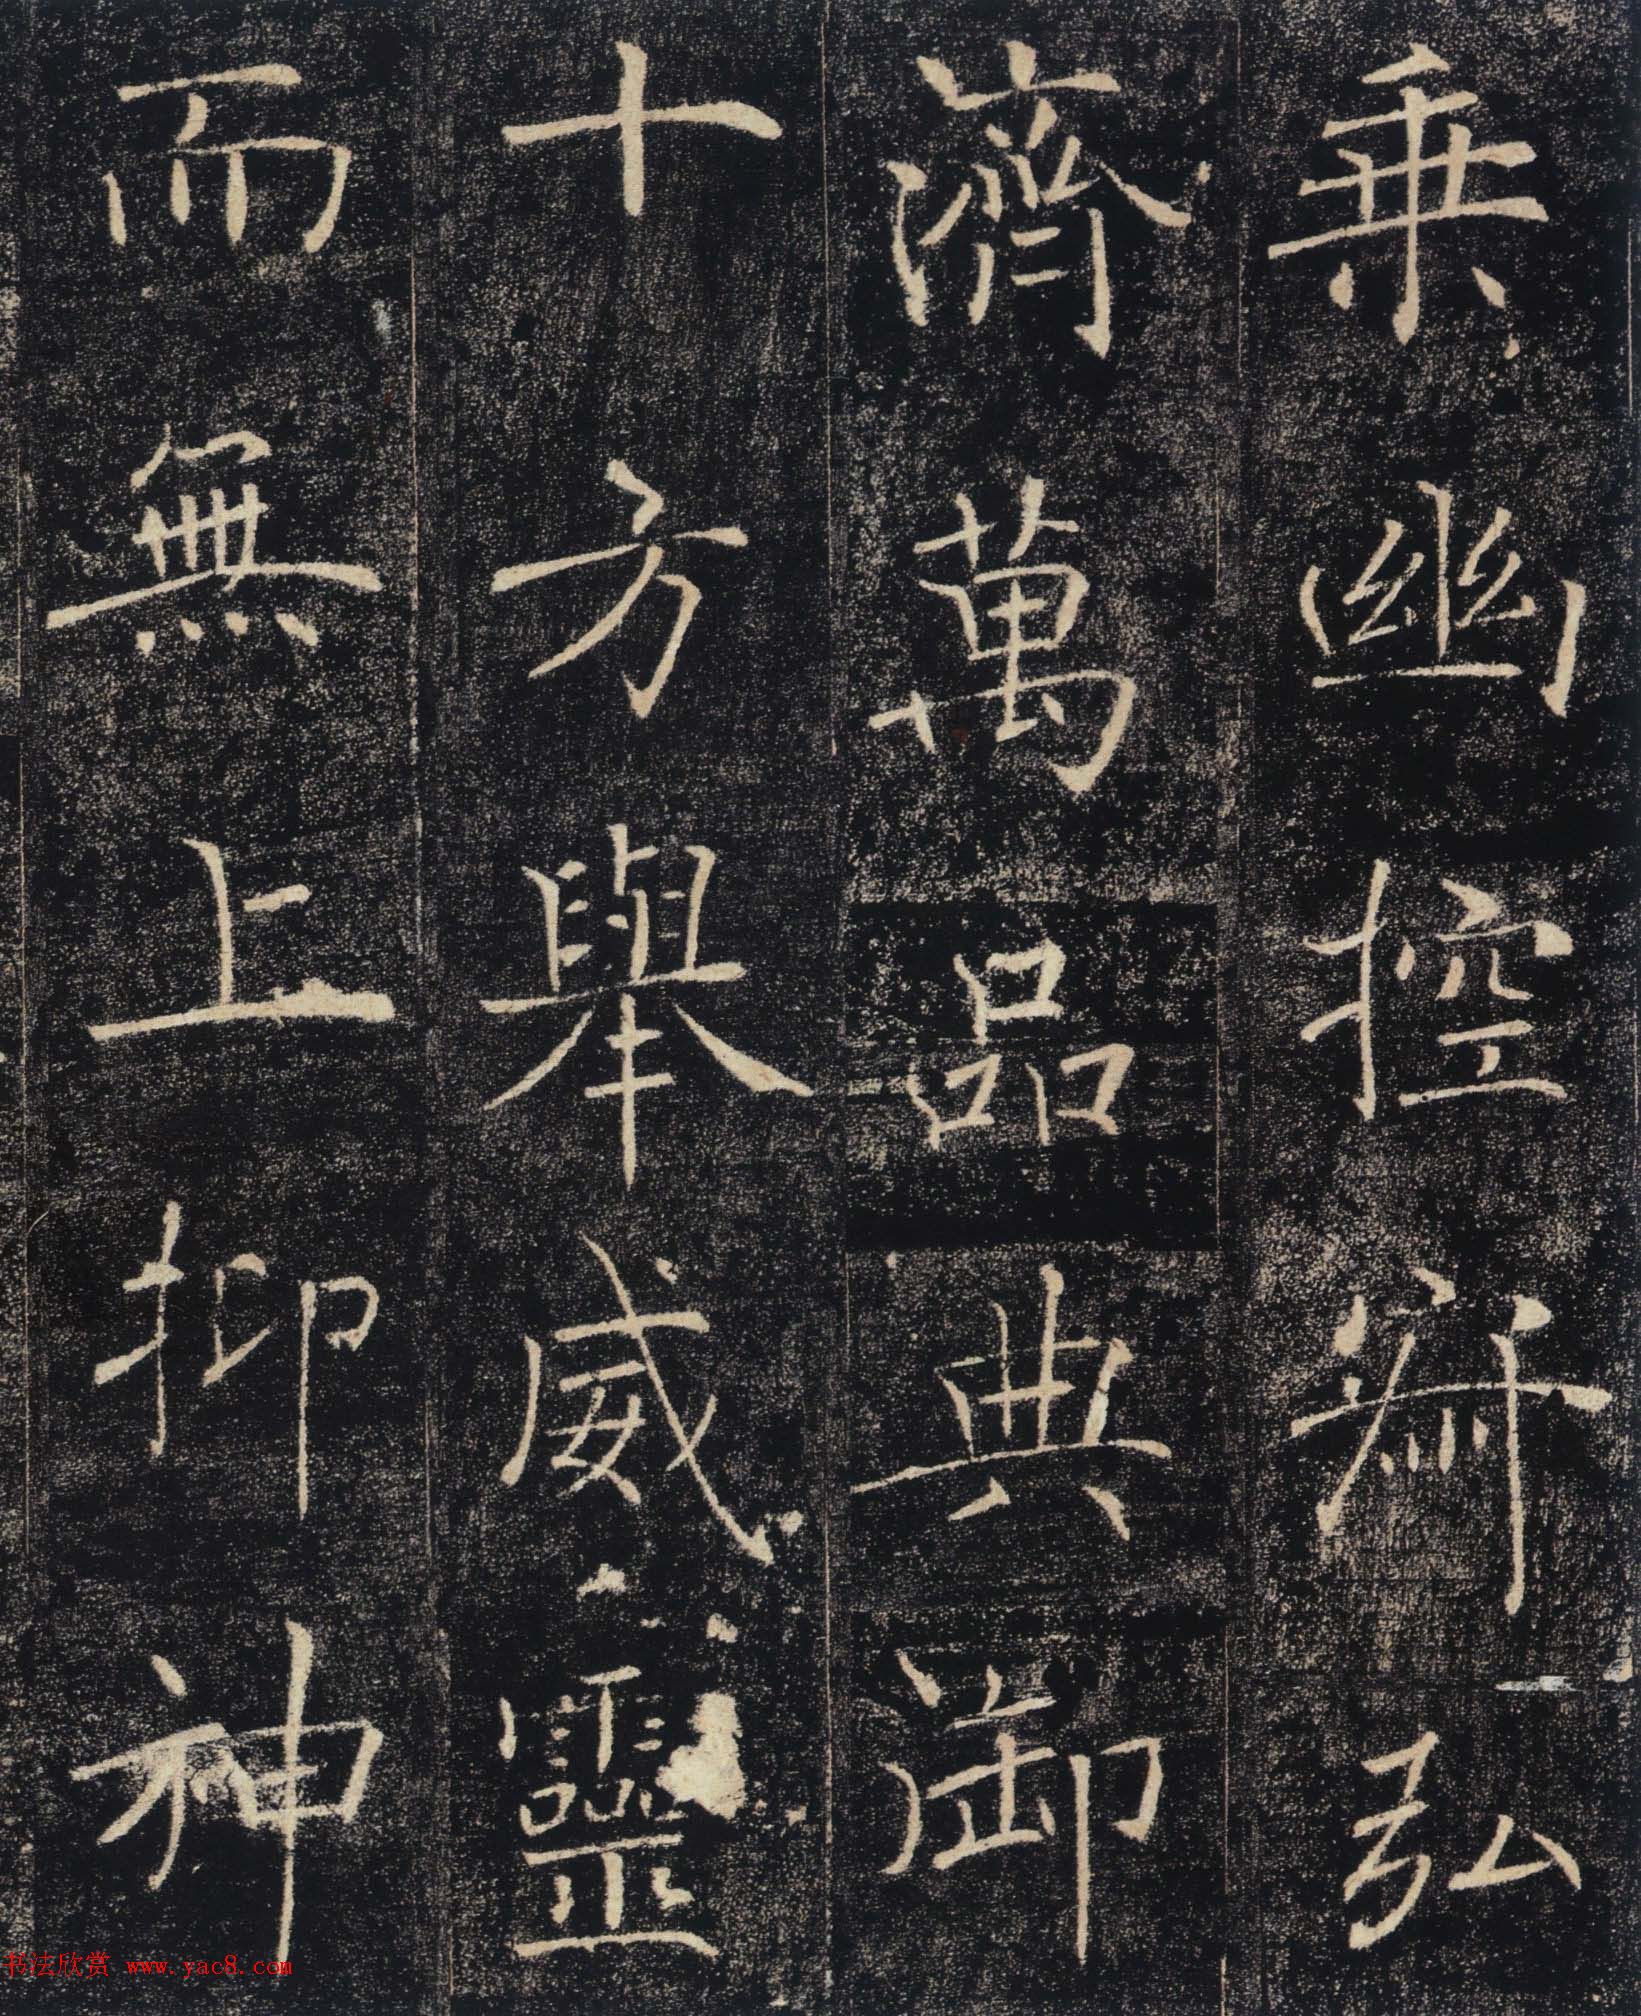 乗幽控寂弘
濟萬品典御
十方舉威靈
而無上抑神
书法欣赏 www.yac8.com